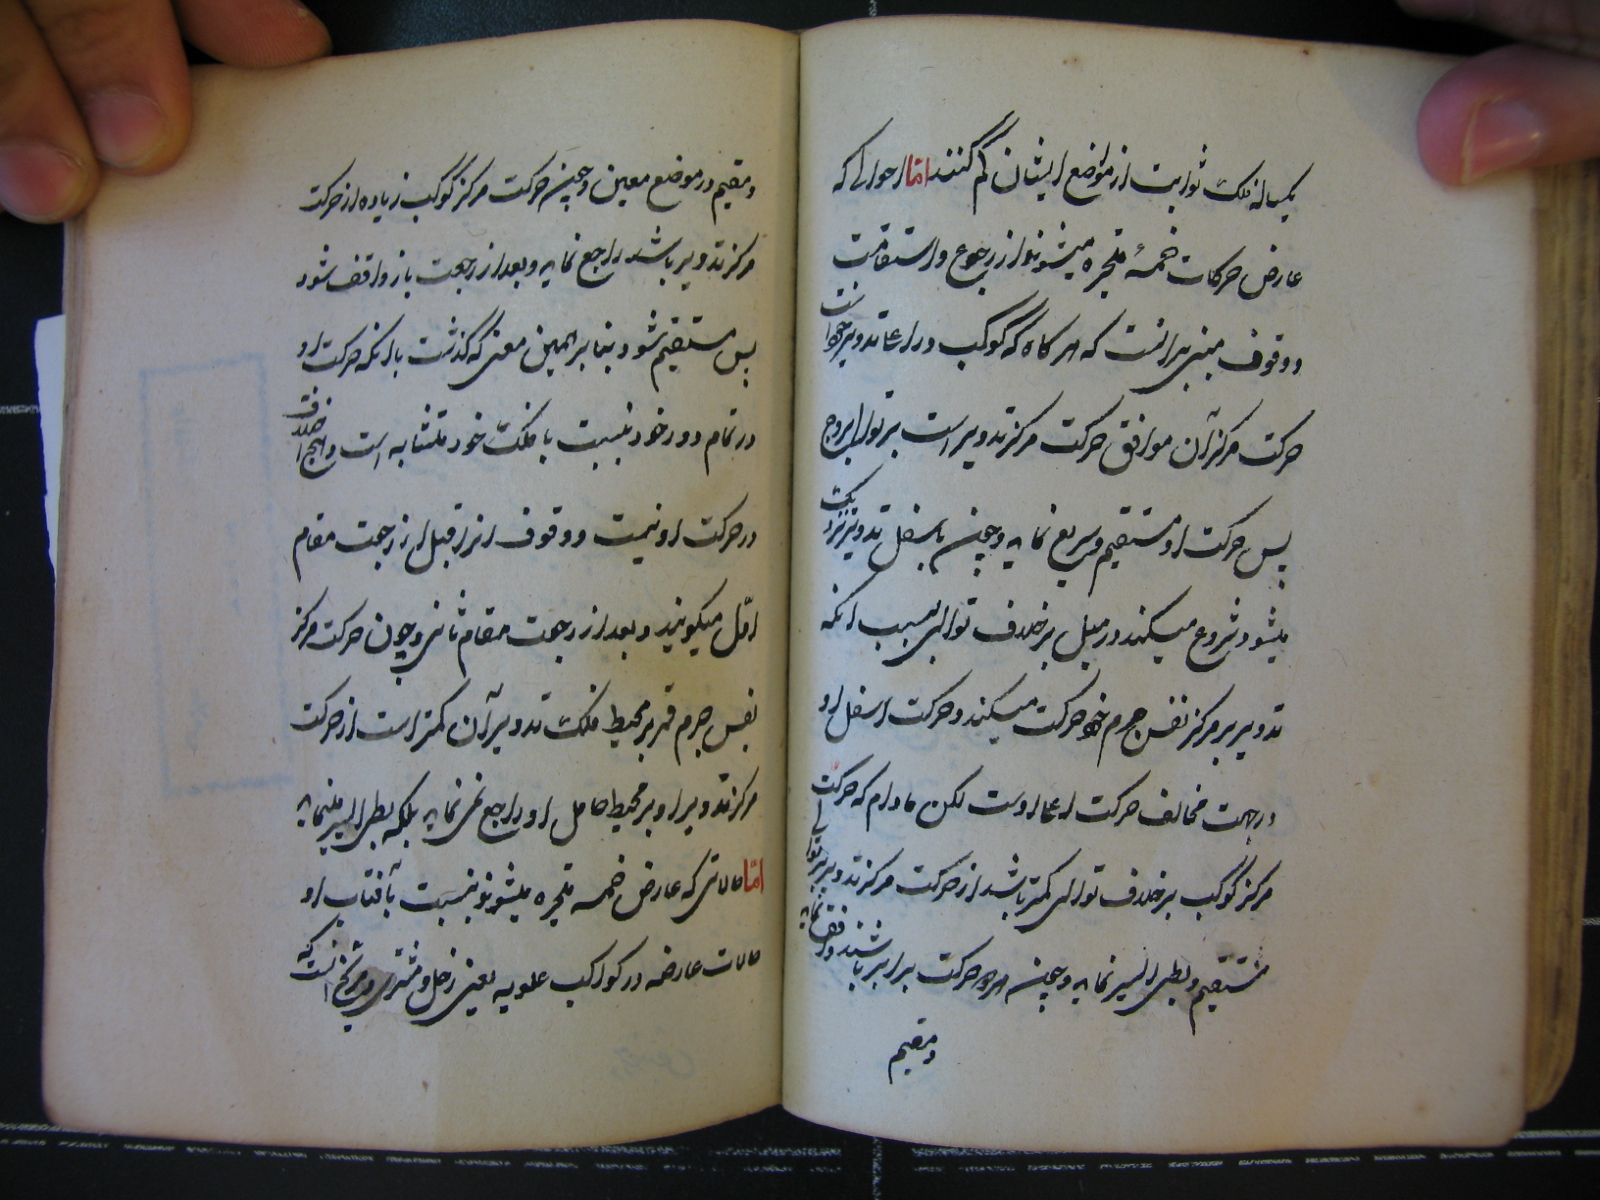 یکساله فلک ثوابت از مواضع ایشان کم کنند اما احوالی که
عارض حرکات خمسهٔ متحیره میشوند از رجوع و استقامت
و وقوف مبنی برانست که هر کاه که کوکب در اعلا تدویر خود است
حرکت مرکز آن موافق حرکت مرکز تدویر است بر توالی بروج
پس حرکت او مستقیم و سریع نماید و چون باسفل تدویر نزدیک
میشود شروع میکند در میل بر خلاف توالی بسبب انکه
تدویر بر مرکز نفس جرم خود حرکت میکند و حرکت اسفل او
در جهت مخالف حرکت اعلا اوست لکن مادام که حرکت
مرکز کوکب بر خلاف توالی کمتر باشد از حرکت مرکز تدویر بر توالی
مستقیم و بطی السیر نماید و چون هر دو حرکت برابر باشند واقف نماید
و مقیم
و مقیم در موضع معین و چون حرکت مرکز کوکب زیاده از حرکت
مرکز تدویر باشد راجع نماید و بعد از رجعت باز واقف شود
پس مستقیم شود بنا بر همین معنی که کذشت با انکه حرکت او
در تمام دور خود بنسبت با فلک خود متشابه است و هیچ اختلاف
در حرکت او نیست و وقوف او را قبل از رجعت مقام
اول میکویند و بعد از رجعت مقام ثانی و چون حرکت مرکز
نفس جرم قمر بر محیط فلک تدویر آن کمتر است از حرکت
مرکز تدویر او بر محیط حامل او راجع نمی نماید بلکه بطی السیر مینماید
اما حالاتی که عارض خمسه متحیره میشوند بنسبت بآفتاب او
حالات عارضه در کواکب علویه یعنی زحل و مشتری و مریخ انست که